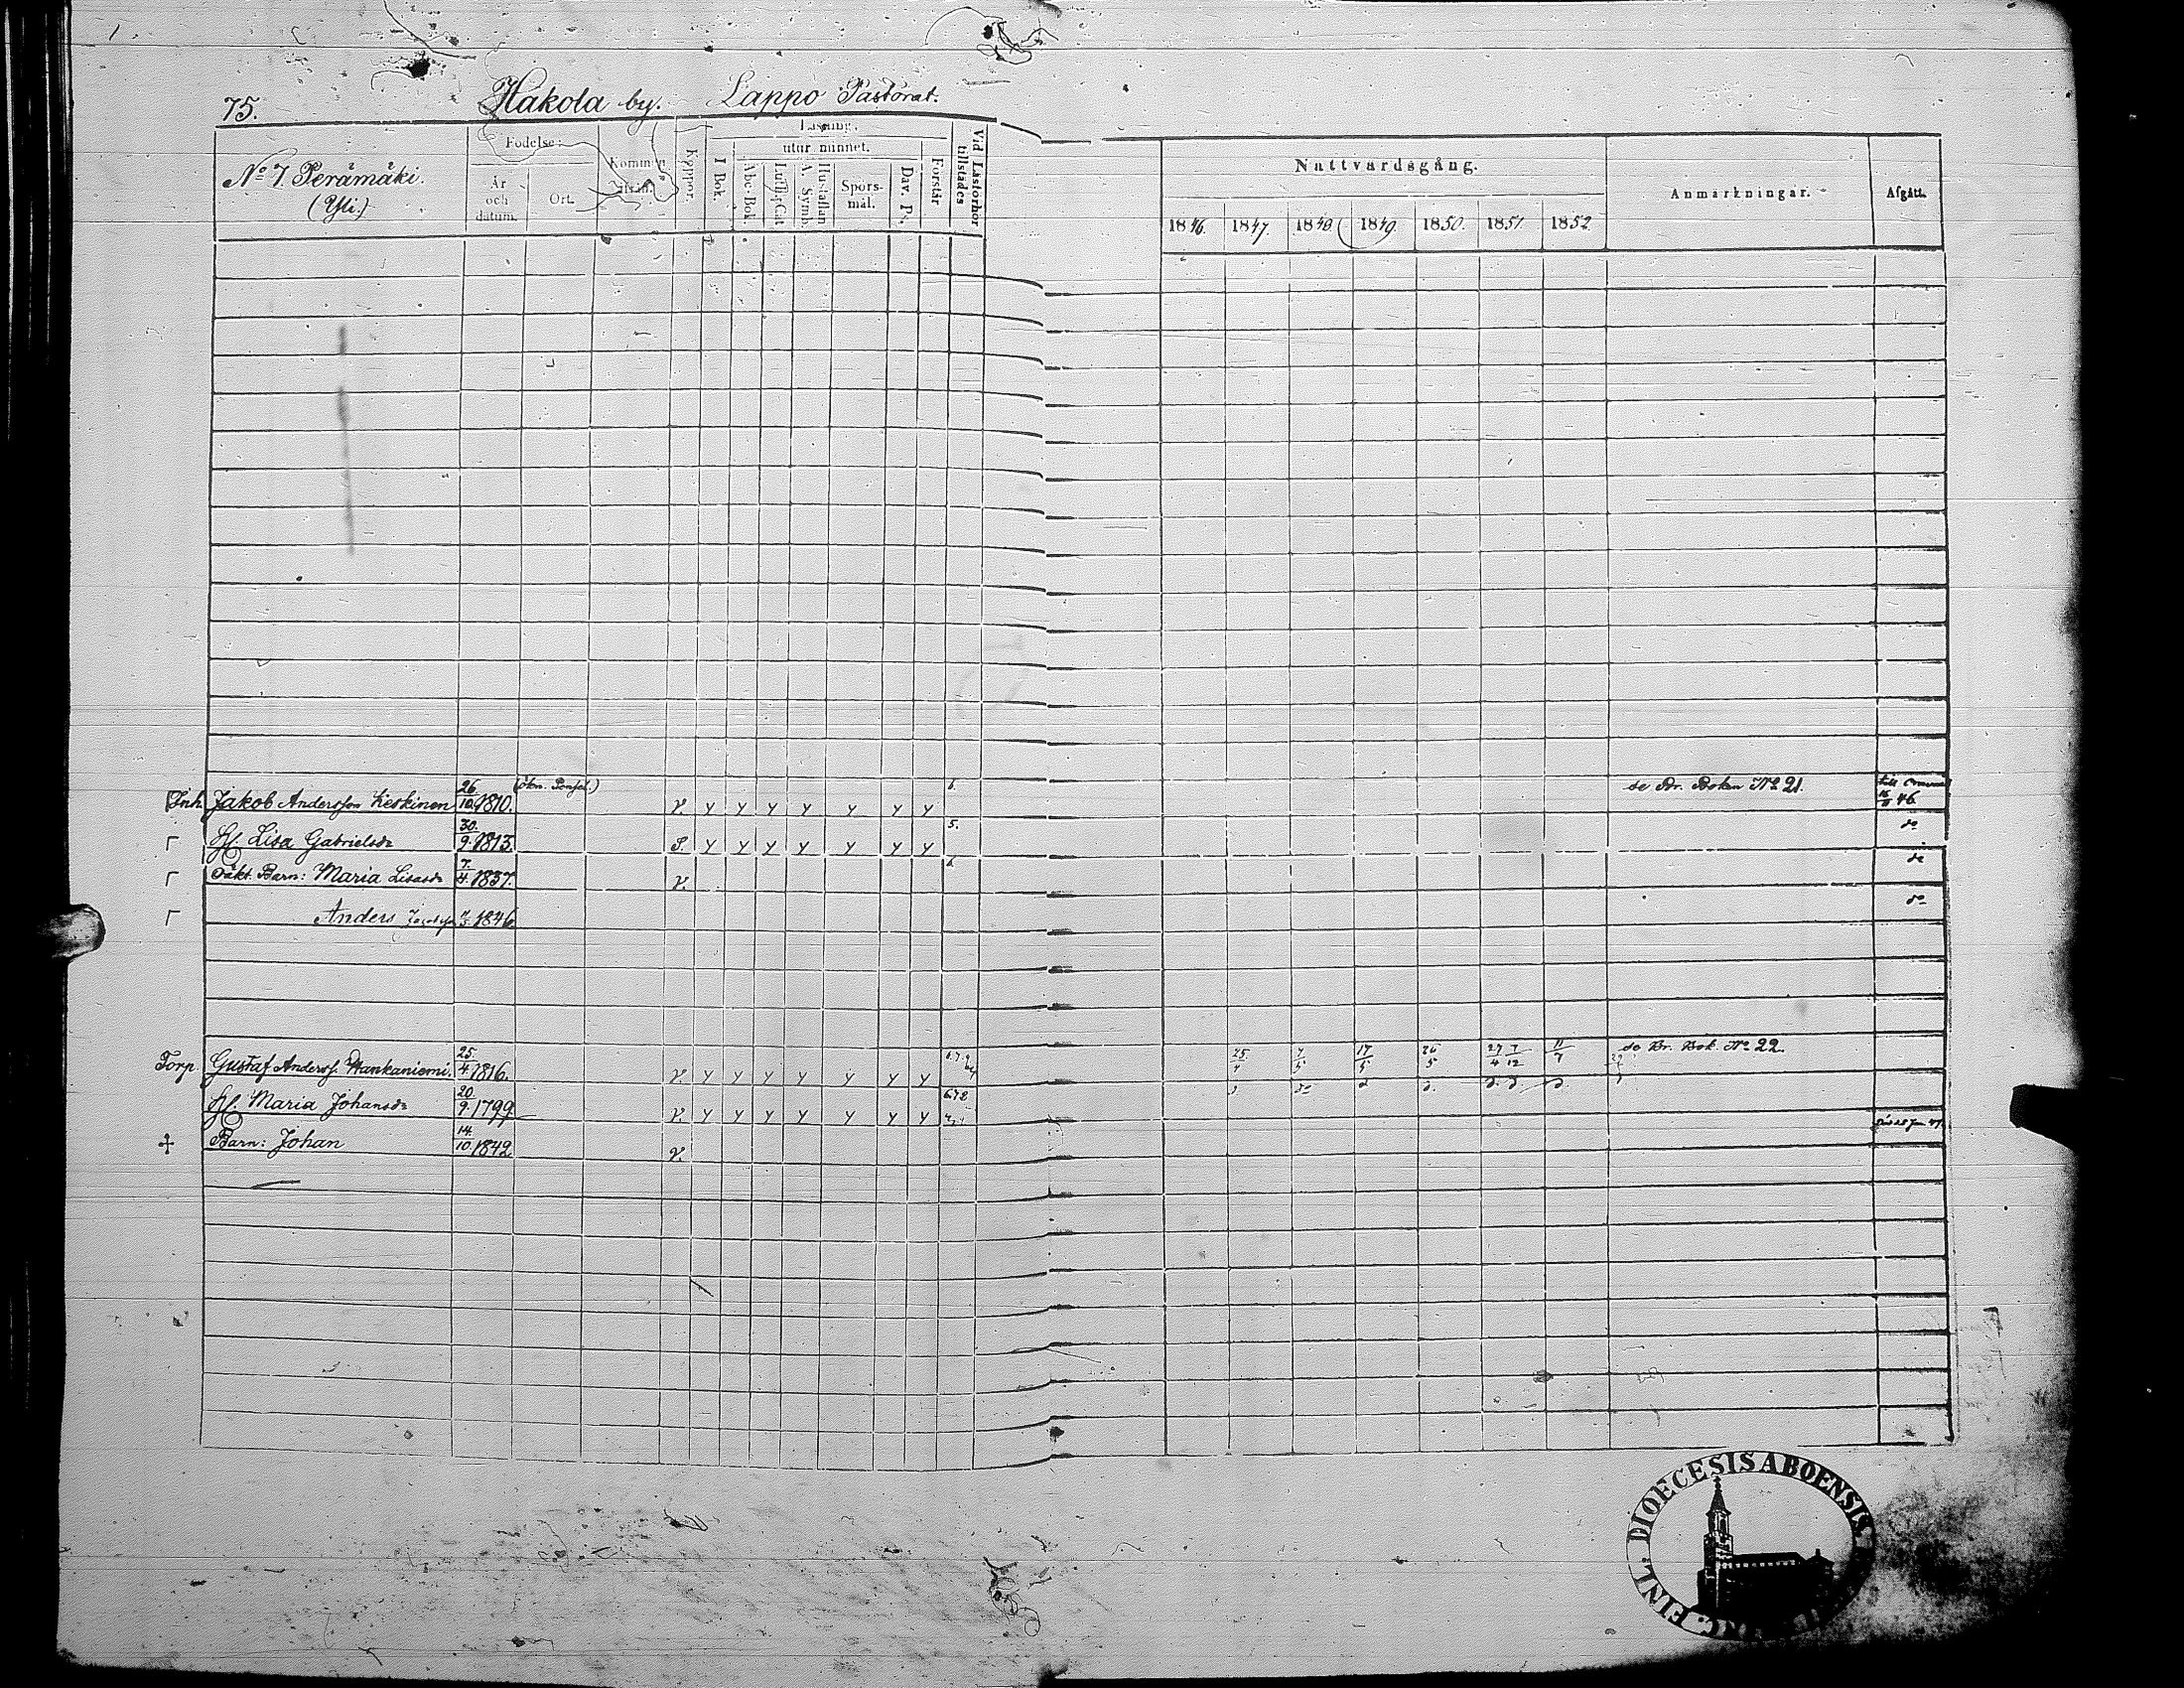 75. Hakola by. Lappo Pastorat.
No 7. Perämäki.
(Yli.)
Födelse:
År och datum.
Ort.
Kommen
Koppor.
Läsning.
I Bok.
utur minnet.
Abc-Bok.
Luth. Cat
Hustaflan A. Symb.
Spörsmål.
Dav. Ps.
Förstår
Vid Läsförhör tillstädes
Nattvardsgång.
1846. 1847. 1848 1849. 1850. 1851. 1852.
Anmärkningar.
Afgått.
Inh. Jakob Andersson Keskinen 26/10 1810. v. y y y y y y y 6. se Br. Boken No 21. 46.
Γ H. Lisa Gabrielsdr 30/9 1813. S. y y y y y y y 5. do
Γ Oäkt. Barn: Maria Lisasdr 7/4 1837. v. do
Γ Anders 1846. do
Torp. Gustaf Anderss. 25/4 1816. v. y y y y y y y 17/5 26/5 27/4 7/12 se Br. Bok. No 22.
H. Maria Johansdr 20/9 1799 v. y y y y y y y
Barn: Johan 14/10 1842 v.
FINL. DIOECESIS ABOENSIS